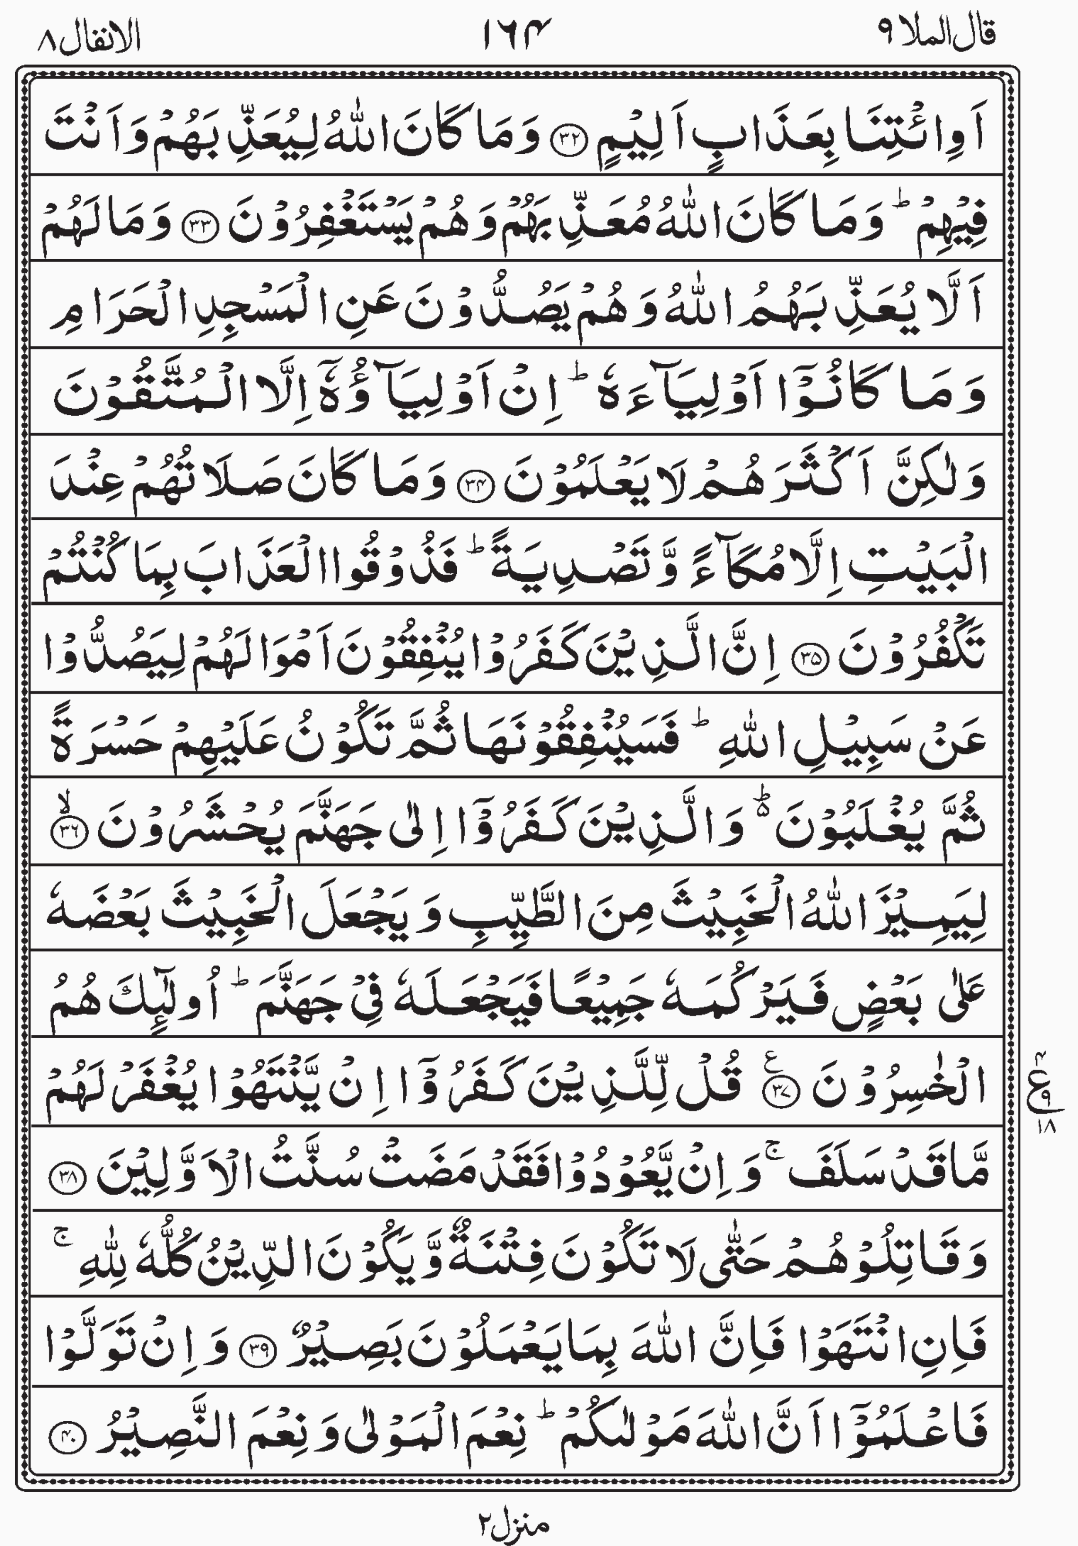 قال الملا ۹ ۱۶۴ الانفال ۸
اَوِ ائْتِنَا بِعَذَابٍ اَلِيْمٍ ۳۲ وَمَا كَانَ اللّٰهُ لِيُعَذِّبَهُمْ وَاَنْتَ
فِيْهِمْ ؕ وَمَا كَانَ اللّٰهُ مُعَذِّبَهُمْ وَهُمْ يَسْتَغْفِرُوْنَ ۳۳ وَمَا لَهُمْ
اَلَّا يُعَذِّبَهُمُ اللّٰهُ وَهُمْ يَصُدُّوْنَ عَنِ الْمَسْجِدِ الْحَرَامِ
وَمَا كَانُوْۤا اَوْلِيَآءَهٗ ؕ اِنْ اَوْلِيَآؤُهٗۤ اِلَّا الْمُتَّقُوْنَ
وَلٰكِنَّ اَكْثَرَهُمْ لَا يَعْلَمُوْنَ ۳۴ وَمَا كَانَ صَلَاتُهُمْ عِنْدَ
الْبَيْتِ اِلَّا مُكَآءً وَّتَصْدِيَةً ؕ فَذُوْقُوا الْعَذَابَ بِمَا كُنْتُمْ
تَكْفُرُوْنَ ۳۵ اِنَّ الَّذِيْنَ كَفَرُوْا يُنْفِقُوْنَ اَمْوَالَهُمْ لِيَصُدُّوْا
عَنْ سَبِيْلِ اللّٰهِ ؕ فَسَيُنْفِقُوْنَهَا ثُمَّ تَكُوْنُ عَلَيْهِمْ حَسْرَةً
ثُمَّ يُغْلَبُوْنَ ۬ؕ وَالَّذِيْنَ كَفَرُوْۤا اِلٰى جَهَنَّمَ يُحْشَرُوْنَ ۳۶ ۙ
لِيَمِيْزَ اللّٰهُ الْخَبِيْثَ مِنَ الطَّيِّبِ وَيَجْعَلَ الْخَبِيْثَ بَعْضَهٗ
عَلٰى بَعْضٍ فَيَرْكُمَهٗ جَمِيْعًا فَيَجْعَلَهٗ فِيْ جَهَنَّمَ ؕ اُولٰٓئِكَ هُمُ
الْخٰسِرُوْنَ ۳۷ ع قُلْ لِّلَّذِيْنَ كَفَرُوْۤا اِنْ يَّنْتَهُوْا يُغْفَرْ لَهُمْ
۴ ع ۹ ۱۸
مَّا قَدْ سَلَفَ ۚ وَاِنْ يَّعُوْدُوْا فَقَدْ مَضَتْ سُنَّتُ الْاَوَّلِيْنَ ۳۸
وَقَاتِلُوْهُمْ حَتّٰى لَا تَكُوْنَ فِتْنَةٌ وَّيَكُوْنَ الدِّيْنُ كُلُّهٗ لِلّٰهِ ۚ
فَاِنِ انْتَهَوْا فَاِنَّ اللّٰهَ بِمَا يَعْمَلُوْنَ بَصِيْرٌ ۳۹ وَاِنْ تَوَلَّوْا
فَاعْلَمُوْۤا اَنَّ اللّٰهَ مَوْلٰىكُمْ ؕ نِعْمَ الْمَوْلٰى وَنِعْمَ النَّصِيْرُ ۴۰
منزل ۲